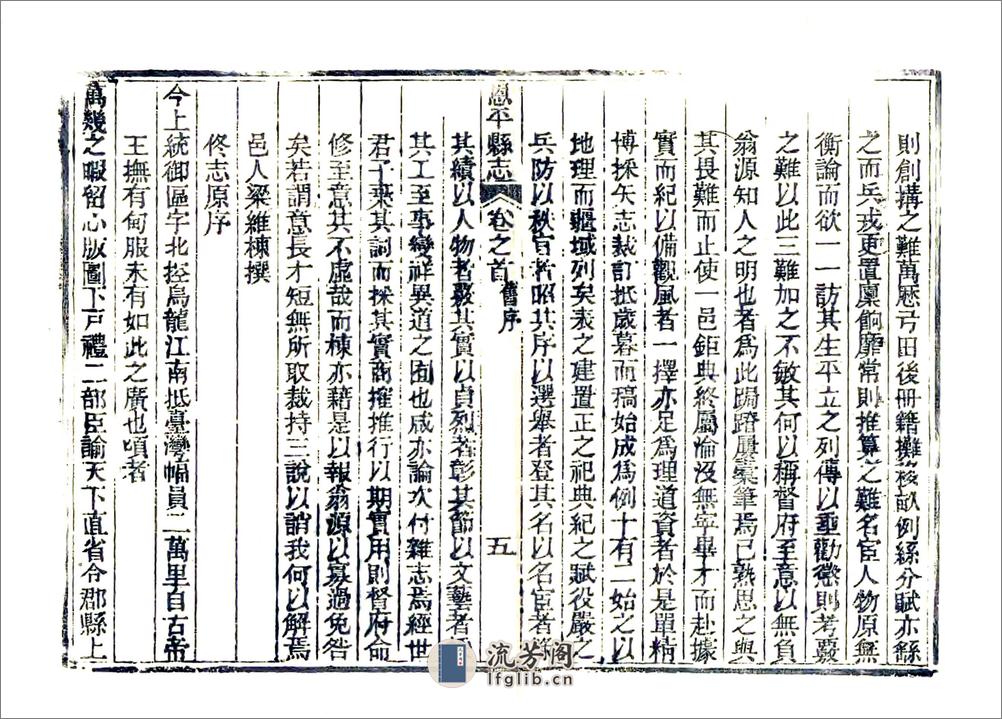 則創搆之難萬厯弓田後册籍攤稅畝例絲分賦亦繇
之而兵戎更置廩餉靡常則推算之難名臣人物原無
衡論而欲一一訪其生平立之列傳以垂勸懲則考覈
之難以此三難加之不敏其何以稱督府至意以無負
翁源知人之明也者爲此跼蹐屢橐筆焉已熟思之與
其畏難而止使一邑鉅典終屬淪没無寧畢才而赴據
實而紀以備觀風者一擇亦足爲理道資者於是單精
博採矢志裁訂抵歲暮而稿始成爲例十有二始之以
地理而疆域列矣表之建置正之祀典紀之賦役嚴之
兵防以秩官者昭其序以選舉者登其名以名宦者
恩平縣志 卷之首 舊序 五
其績以人物者覈其實以貞烈者彰其節以文藝者
其工至事變祥異道之囿也咸亦論次付雜志焉經世
君子棄其詞而採其實商搉推行以期實用則督府命
修至意其不虛哉而棟亦藉是以報翁源以寡過免咎
矣若謂意長才短無所取裁持三說以誚我何以解焉
邑人梁維棟撰
佟志原序
今上統御區宇北控烏龍江南抵臺灣幅員二萬里自古帝
王撫有甸服未有如此之廣也頃者
萬幾之暇留心版圖下戸禮二部臣諭天下直省令郡縣上
流芳阁
lfglib.cn